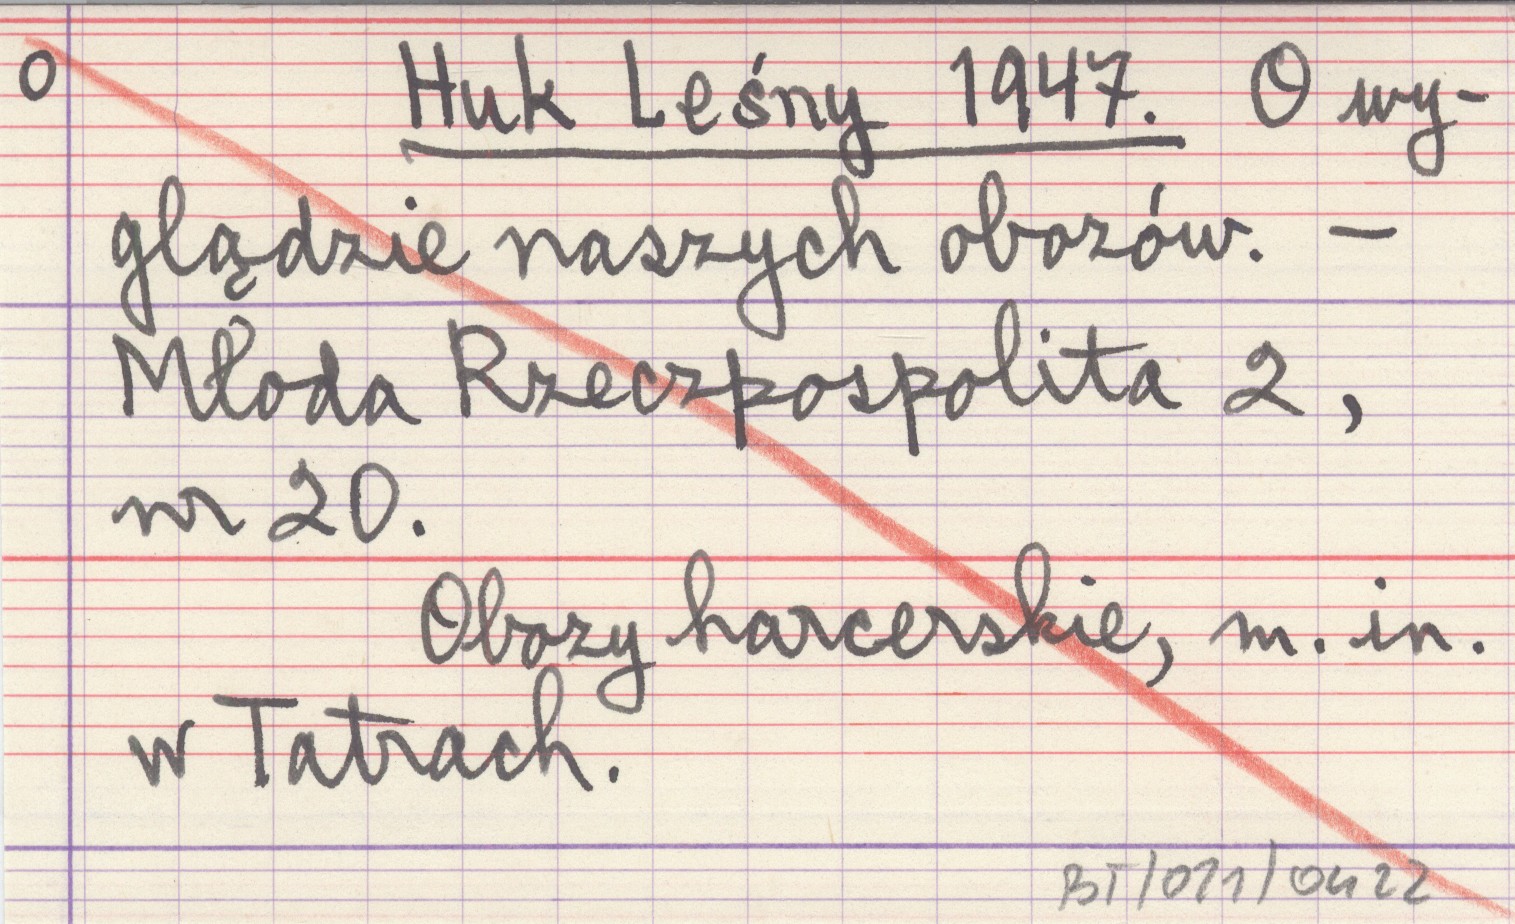 O Huk Leśny 1947. O wy-
glądzie naszych obozów. —
Młoda Rzeczpospolita 2,
nr 20.
Obozy harcerskie, m. in.
w Tatrach.
BT/071/0422